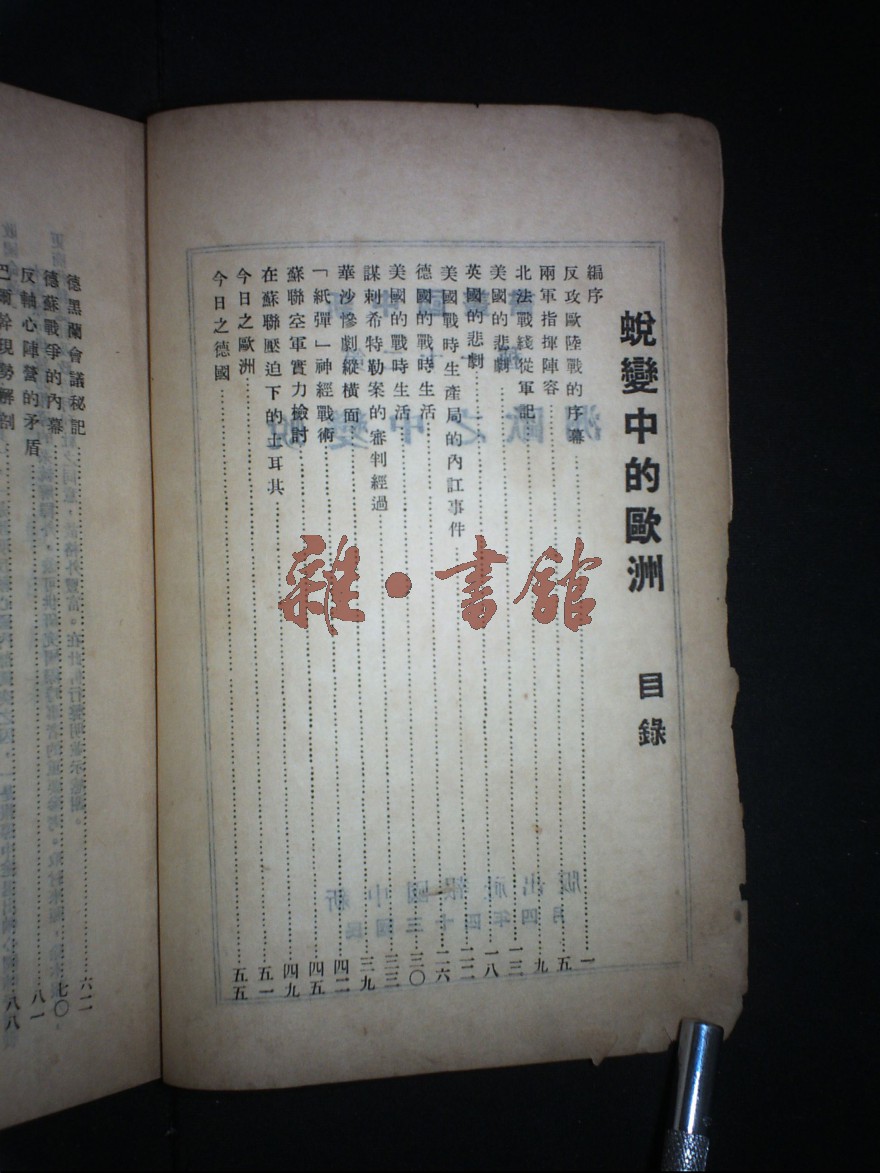 蛻變中的歐洲 目錄
編序……一
反攻歐陸戰的序幕……五
兩軍指揮陣容……九
北法戰綫從軍記……一三
美國的悲劇……一八
英國的悲劇……二二
美國戰時生產局的內訌事件……二六
德國的戰時生活……三〇
美國的戰時生活……三三
謀刺希特勒案的審判經過……三九
華沙慘劇縱橫面……四二
「紙彈」神經戰術……四五
蘇聯空軍實力檢討……四九
在蘇聯壓迫下的土耳其……五一
今日之歐洲……五五
今日之德國……
德黑蘭會議秘記……六二
德蘇戰爭的內幕……七〇
反軸心陣營的矛盾……八一
巴爾幹現勢解剖……八八
雜·書館